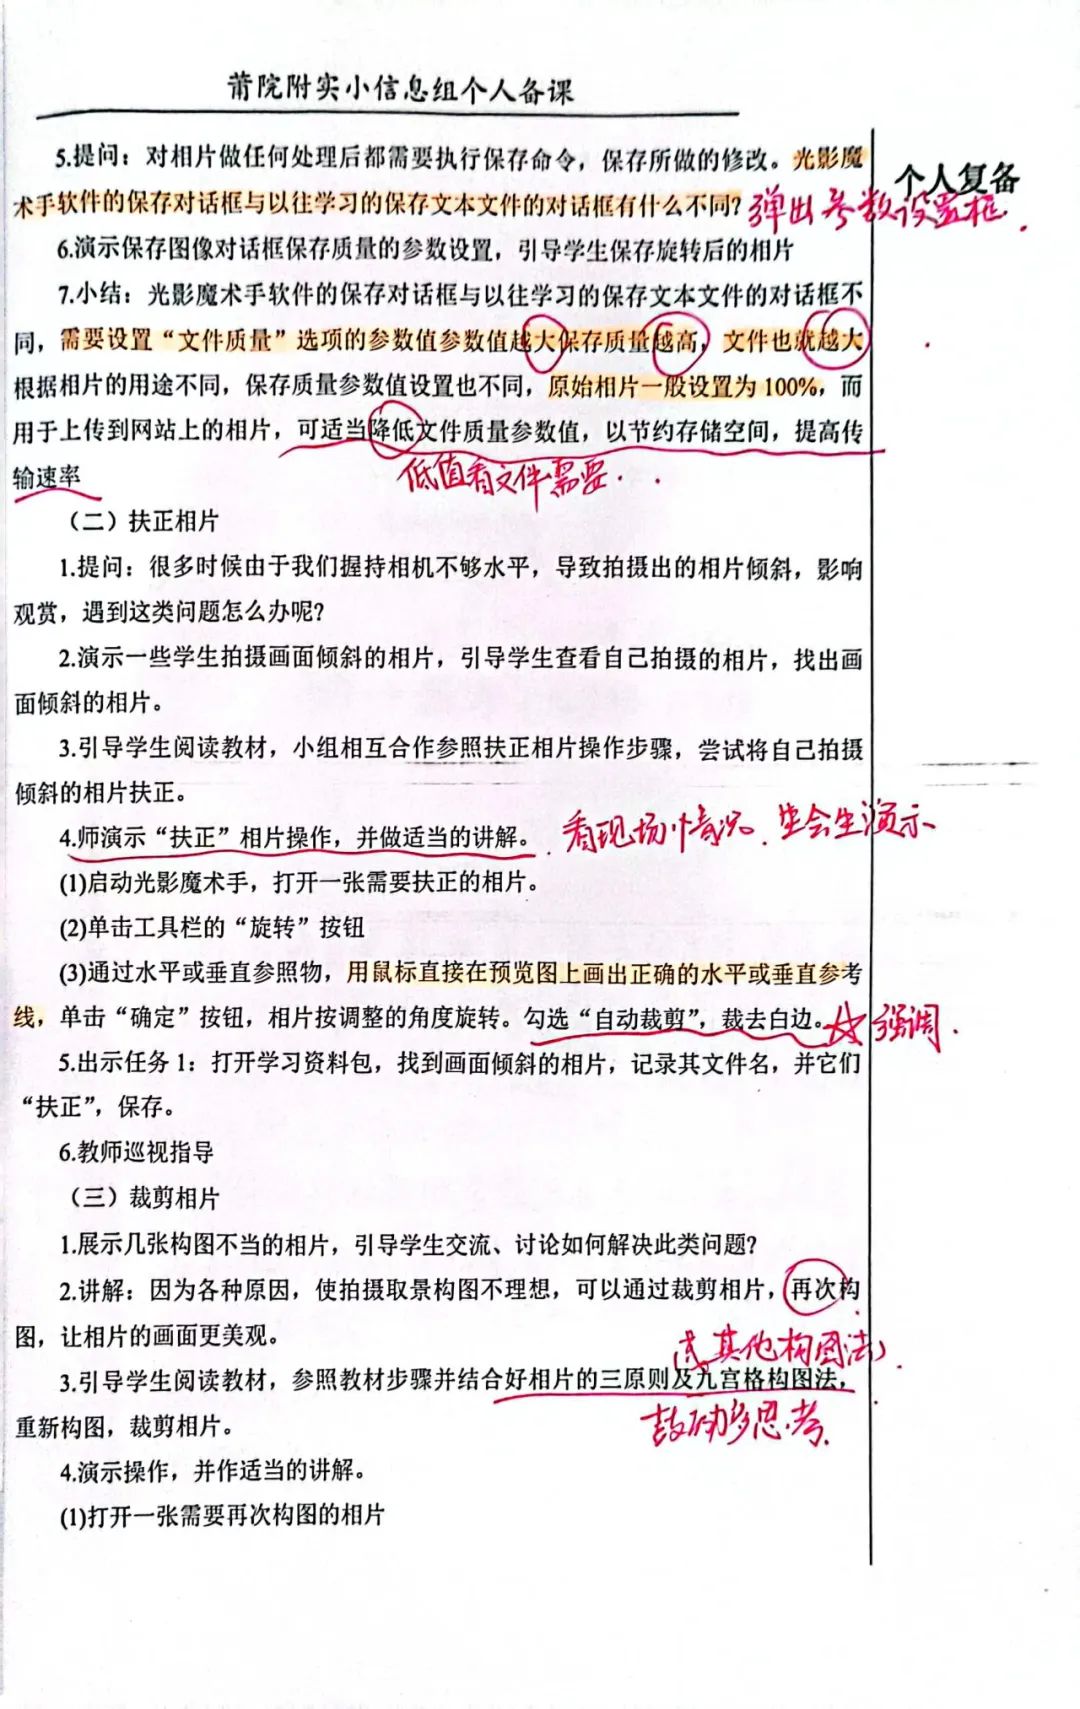 莆院附实小信息组个人备课
个人复备
5.提问：对相片做任何处理后都需要执行保存命令，保存所做的修改。光影魔
术手软件的保存对话框与以往学习的保存文本文件的对话框有什么不同?
弹出参数设置框.
6.演示保存图像对话框保存质量的参数设置，引导学生保存旋转后的相片
7.小结：光影魔术手软件的保存对话框与以往学习的保存文本文件的对话框不
同，需要设置“文件质量”选项的参数值参数值越大保存质量越高，文件也就越大
根据相片的用途不同，保存质量参数值设置也不同，原始相片一般设置为100%，而
用于上传到网站上的相片，可适当降低文件质量参数值，以节约存储空间，提高传
输速率
低值看文件需要..
（二）扶正相片
1.提问：很多时候由于我们握持相机不够水平，导致拍摄出的相片倾斜，影响
观赏，遇到这类问题怎么办呢?
2.演示一些学生拍摄画面倾斜的相片，引导学生查看自己拍摄的相片，找出画
面倾斜的相片。
3.引导学生阅读教材，小组相互合作参照扶正相片操作步骤，尝试将自己拍摄
倾斜的相片扶正。
4.师演示“扶正”相片操作，并做适当的讲解。
看现场情况.生会生演示
(1)启动光影魔术手，打开一张需要扶正的相片。
(2)单击工具栏的“旋转”按钮
(3)通过水平或垂直参照物，用鼠标直接在预览图上画出正确的水平或垂直参考
线，单击“确定”按钮，相片按调整的角度旋转。勾选“自动裁剪”，裁去白边。
☆强调.
5.出示任务1：打开学习资料包，找到画面倾斜的相片，记录其文件名，并它们
“扶正”，保存。
6.教师巡视指导
（三）裁剪相片
1.展示几张构图不当的相片，引导学生交流、讨论如何解决此类问题?
2.讲解：因为各种原因，使拍摄取景构图不理想，可以通过裁剪相片，再次构
图，让相片的画面更美观。
其他构图法)
3.引导学生阅读教材，参照教材步骤并结合好相片的三原则及九宫格构图法，
鼓励多思考
重新构图，裁剪相片。
4.演示操作，并作适当的讲解。
(1)打开一张需要再次构图的相片